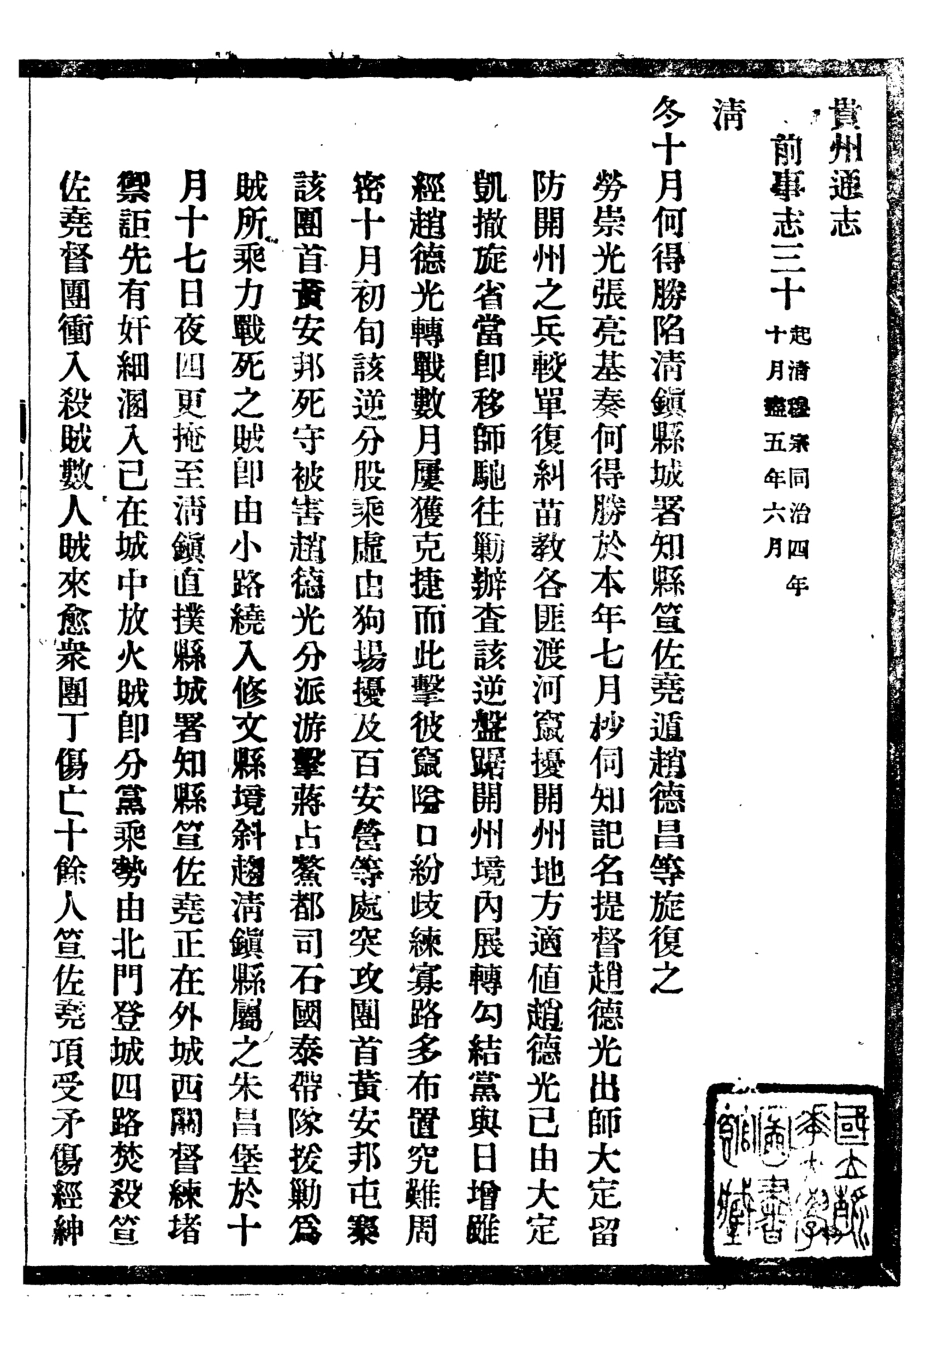 貴州通志
前事志三十 起清穆宗同治四年
十月盡五年六月
清
冬十月何得勝陷清鎮縣城署知縣笪佐堯遁趙德昌等旋復之
勞崇光張亮基奏何得勝於本年七月杪伺知記名提督趙德光出師大定留
防開州之兵較單復糾苗教各匪渡河竄擾開州地方適値趙德光已由大定
凱撤旋省當卽移師馳往勦辦査該逆盤踞開州境內展轉勾結黨與日增雖
經趙德光轉戰數月屢獲克捷而此擊彼竄隘口紛歧練寡路多布置究難周
密十月初旬該逆分股乘虛由狗場擾及百安營等處突攻團首黃安邦屯寨
該團首黃安邦死守被害趙德光分派游擊蔣占鰲都司石國泰帶隊援勦爲
賊所乘力戰死之賊卽由小路繞入修文縣境斜趨清鎮縣屬之朱昌堡於十
月十七日夜四更掩至清鎮直撲縣城署知縣笪佐堯正在外城西關督練堵
禦詎先有奸細溷入已在城中放火賊卽分黨乘勢由北門登城四路焚殺笪
佐堯督團衝入殺賊數人賊來愈衆團丁傷亡十餘人笪佐堯項受矛傷經紳